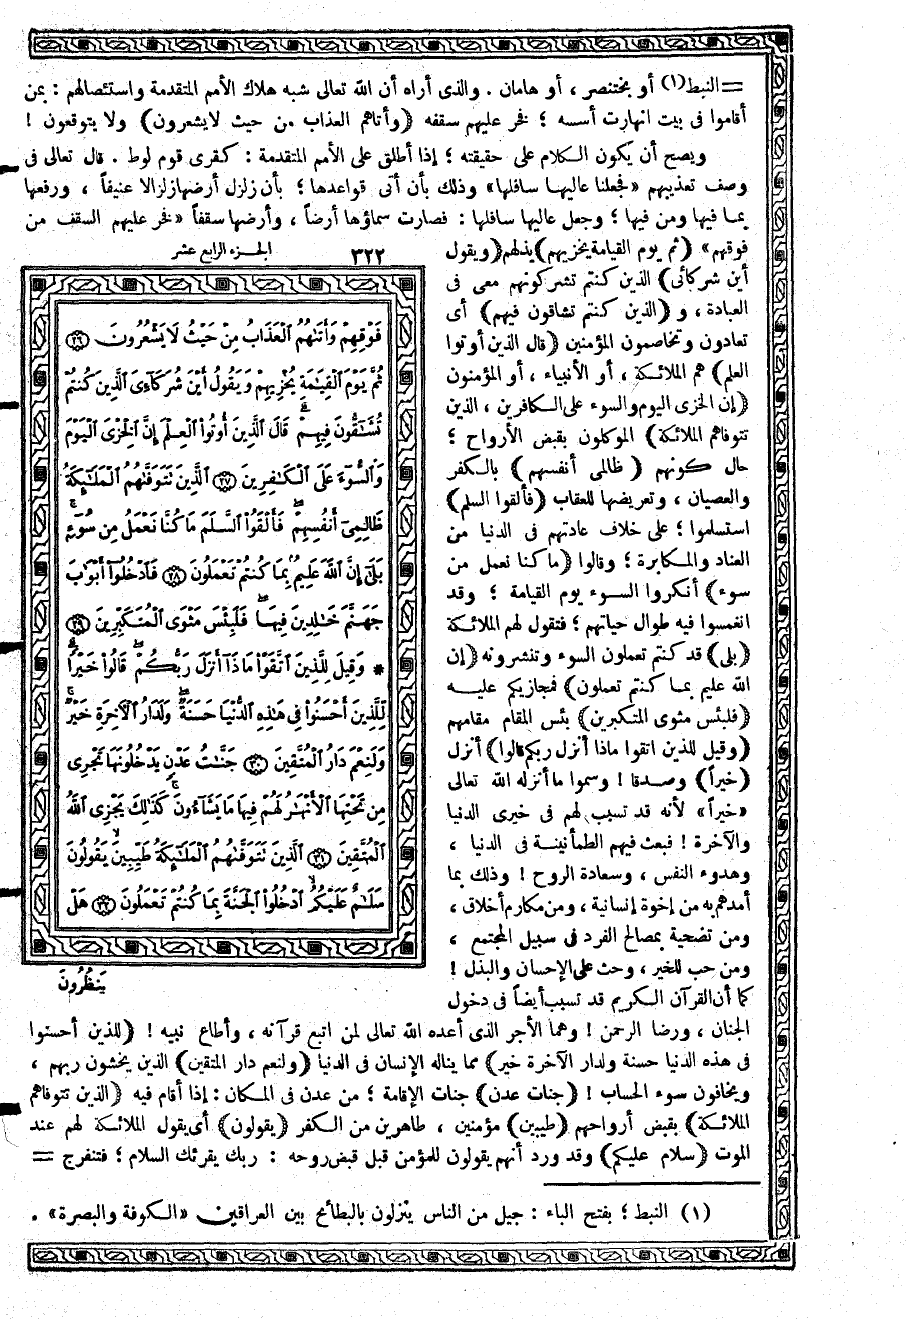 = النبط (١) أو بختنصر ، أو هامان . والذى أراه أن الله تعالى شبه هلاك الأمم المتقدمة واستئصالهم : بمن
أقاموا فى بيت انهارت أسسه ؛ فخر عليهم سقفه (وأتاهم العذاب من حيث لايشعرون) ولا يتوقعون !
ويصح أن يكون الكلام على حقيقته ؛ إذا أطلق على الأمم المتقدمة : كقرى قوم لوط . قال تعالى فى
وصف تعذيبهم «فجعلنا عاليها سافلها» وذلك بأن أتى قواعدها ؛ بأن زلزل أرضها زلزالا عنيفاً ، ورفعها
بما فيها ومن فيها ؛ وجعل عاليها سافلها : فصارت سماؤها أرضاً ، وأرضها سقفاً «فخر عليهم السقف من
فوقهم» (ثم يوم القيامة يخزيهم) يذلهم (ويقول
أين شركائى) الذين كنتم تشركونهم معى فى
العبادة ، و (الذين كنتم تشاقون فيهم) أى
تعادون وتخاصمون المؤمنين (قال الذين أوتوا
العلم) هم الملائكة ، أو الأنبياء ، أو المؤمنون
(إن الخزى اليوم والسوء على الكافرين ، الذين
تتوفاهم الملائكة) الموكلون بقبض الأرواح ؛
حال كونهم (ظالمى أنفسهم) بالكفر
والعصيان ، وتعريضها للعقاب (فألقوا السلم)
استسلموا ؛ على خلاف عادتهم فى الدنيا من
العناد والمكابرة ؛ وقالوا (ما كنا نعمل من
سوء) أنكروا السوء يوم القيامة ؛ وقد
انغمسوا فيه طوال حياتهم ؛ فتقول لهم الملائكة
(بلى) قد كنتم تعملون السوء وتنشرونه (إن
الله عليم بما كنتم تعملون) فمجازيكم عليه
(فلبئس مثوى المتكبرين) بئس المقام مقامهم
(وقيل للذين اتقوا ماذا أنزل ربكم قالوا) أنزل
(خيراً) وصدقا ! وسموا ما أنزله الله تعالى
«خيراً» لأنه قد تسبب لهم فى خيرى الدنيا
والآخرة ! فبعث فيهم الطمأنينة فى الدنيا ،
وهدوء النفس ، وسعادة الروح ! وذلك بما
أمدهم به من إخوة إنسانية ، ومن مكارم أخلاق ،
ومن تضحية بمصالح الفرد فى سبيل المجتمع ،
ومن حب للخير ، وحث على الإحسان والبذل !
كما أن القرآن الكريم قد تسبب أيضاً فى دخول
الجنان ، ورضا الرحمن ! وهما الأجر الذى أعده الله تعالى لمن اتبع قرآنه ، وأطاع نبيه ! (للذين أحسنوا
فى هذه الدنيا حسنة ولدار الآخرة خير) مما يناله الإنسان فى الدنيا (ولنعم دار المتقين) الذين يخشون ربهم ،
ويخافون سوء الحساب ! (جنات عدن) جنات الإقامة ؛ من عدن فى المكان : إذا أقام فيه (الذين تتوفاهم
الملائكة) بقبض أرواحهم (طيبين) مؤمنين ، طاهرين من الكفر (يقولون) أى يقول الملائكة لهم عند
الموت (سلام عليكم) وقد ورد أنهم يقولون للمؤمن قبل قبض روحه : ربك يقرئك السلام ؛ فتنفرج =
٣٢٢ الجزء الرابع عشر
فَوْقِهِمْ وَأَتَىٰهُمُ ٱلْعَذَابُ مِنْ حَيْثُ لَا يَشْعُرُونَ ۝٢٦
ثُمَّ يَوْمَ ٱلْقِيَٰمَةِ يُخْزِيهِمْ وَيَقُولُ أَيْنَ شُرَكَآءِىَ ٱلَّذِينَ كُنتُمْ
تُشَٰٓقُّونَ فِيهِمْ ۚ قَالَ ٱلَّذِينَ أُوتُوا۟ ٱلْعِلْمَ إِنَّ ٱلْخِزْىَ ٱلْيَوْمَ
وَٱلسُّوٓءَ عَلَى ٱلْكَٰفِرِينَ ۝٢٧ ٱلَّذِينَ تَتَوَفَّىٰهُمُ ٱلْمَلَٰٓئِكَةُ
ظَالِمِىٓ أَنفُسِهِمْ ۖ فَأَلْقَوُا۟ ٱلسَّلَمَ مَا كُنَّا نَعْمَلُ مِن سُوٓءٍۭ ۚ
بَلَىٰٓ إِنَّ ٱللَّهَ عَلِيمٌۢ بِمَا كُنتُمْ تَعْمَلُونَ ۝٢٨ فَٱدْخُلُوٓا۟ أَبْوَٰبَ
جَهَنَّمَ خَٰلِدِينَ فِيهَا ۖ فَلَبِئْسَ مَثْوَى ٱلْمُتَكَبِّرِينَ ۝٢٩
* وَقِيلَ لِلَّذِينَ ٱتَّقَوْا۟ مَاذَآ أَنزَلَ رَبُّكُمْ ۖ قَالُوا۟ خَيْرًا ۗ
لِّلَّذِينَ أَحْسَنُوا۟ فِى هَٰذِهِ ٱلدُّنْيَا حَسَنَةٌ ۖ وَلَدَارُ ٱلْءَاخِرَةِ خَيْرٌ ۚ
وَلَنِعْمَ دَارُ ٱلْمُتَّقِينَ ۝٣٠ جَنَّٰتُ عَدْنٍ يَدْخُلُونَهَا تَجْرِى
مِن تَحْتِهَا ٱلْأَنْهَٰرُ ۖ لَهُمْ فِيهَا مَا يَشَآءُونَ ۚ كَذَٰلِكَ يَجْزِى ٱللَّهُ
ٱلْمُتَّقِينَ ۝٣١ ٱلَّذِينَ تَتَوَفَّىٰهُمُ ٱلْمَلَٰٓئِكَةُ طَيِّبِينَ ۙ يَقُولُونَ
سَلَٰمٌ عَلَيْكُمُ ۙ ٱدْخُلُوا۟ ٱلْجَنَّةَ بِمَا كُنتُمْ تَعْمَلُونَ ۝٣٢ هَلْ
يَنظُرُونَ
(١) النبط ؛ بفتح الباء : جيل من الناس ينزلون بالبطائح بين العراقين «الكوفة والبصرة» .